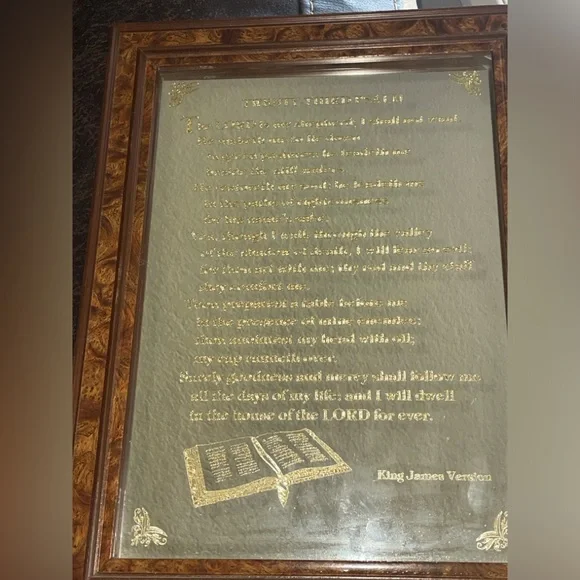 The LORD is my shepherd; I shall not want.
He maketh me to lie down
He restoreth my soul: he leadeth me
in the paths of righteousness
for his name's sake.
Yea, though I walk through the valley
of the shadow of death, I will fear no evil:
for thou art with me; thy rod and thy staff
they comfort me.
Thou preparest a table before me
in the presence of mine enemies:
thou anointest my head with oil;
my cup runneth over.
Surely goodness and mercy shall follow me
all the days of my life: and I will dwell
in the house of the LORD for ever.
King James Version